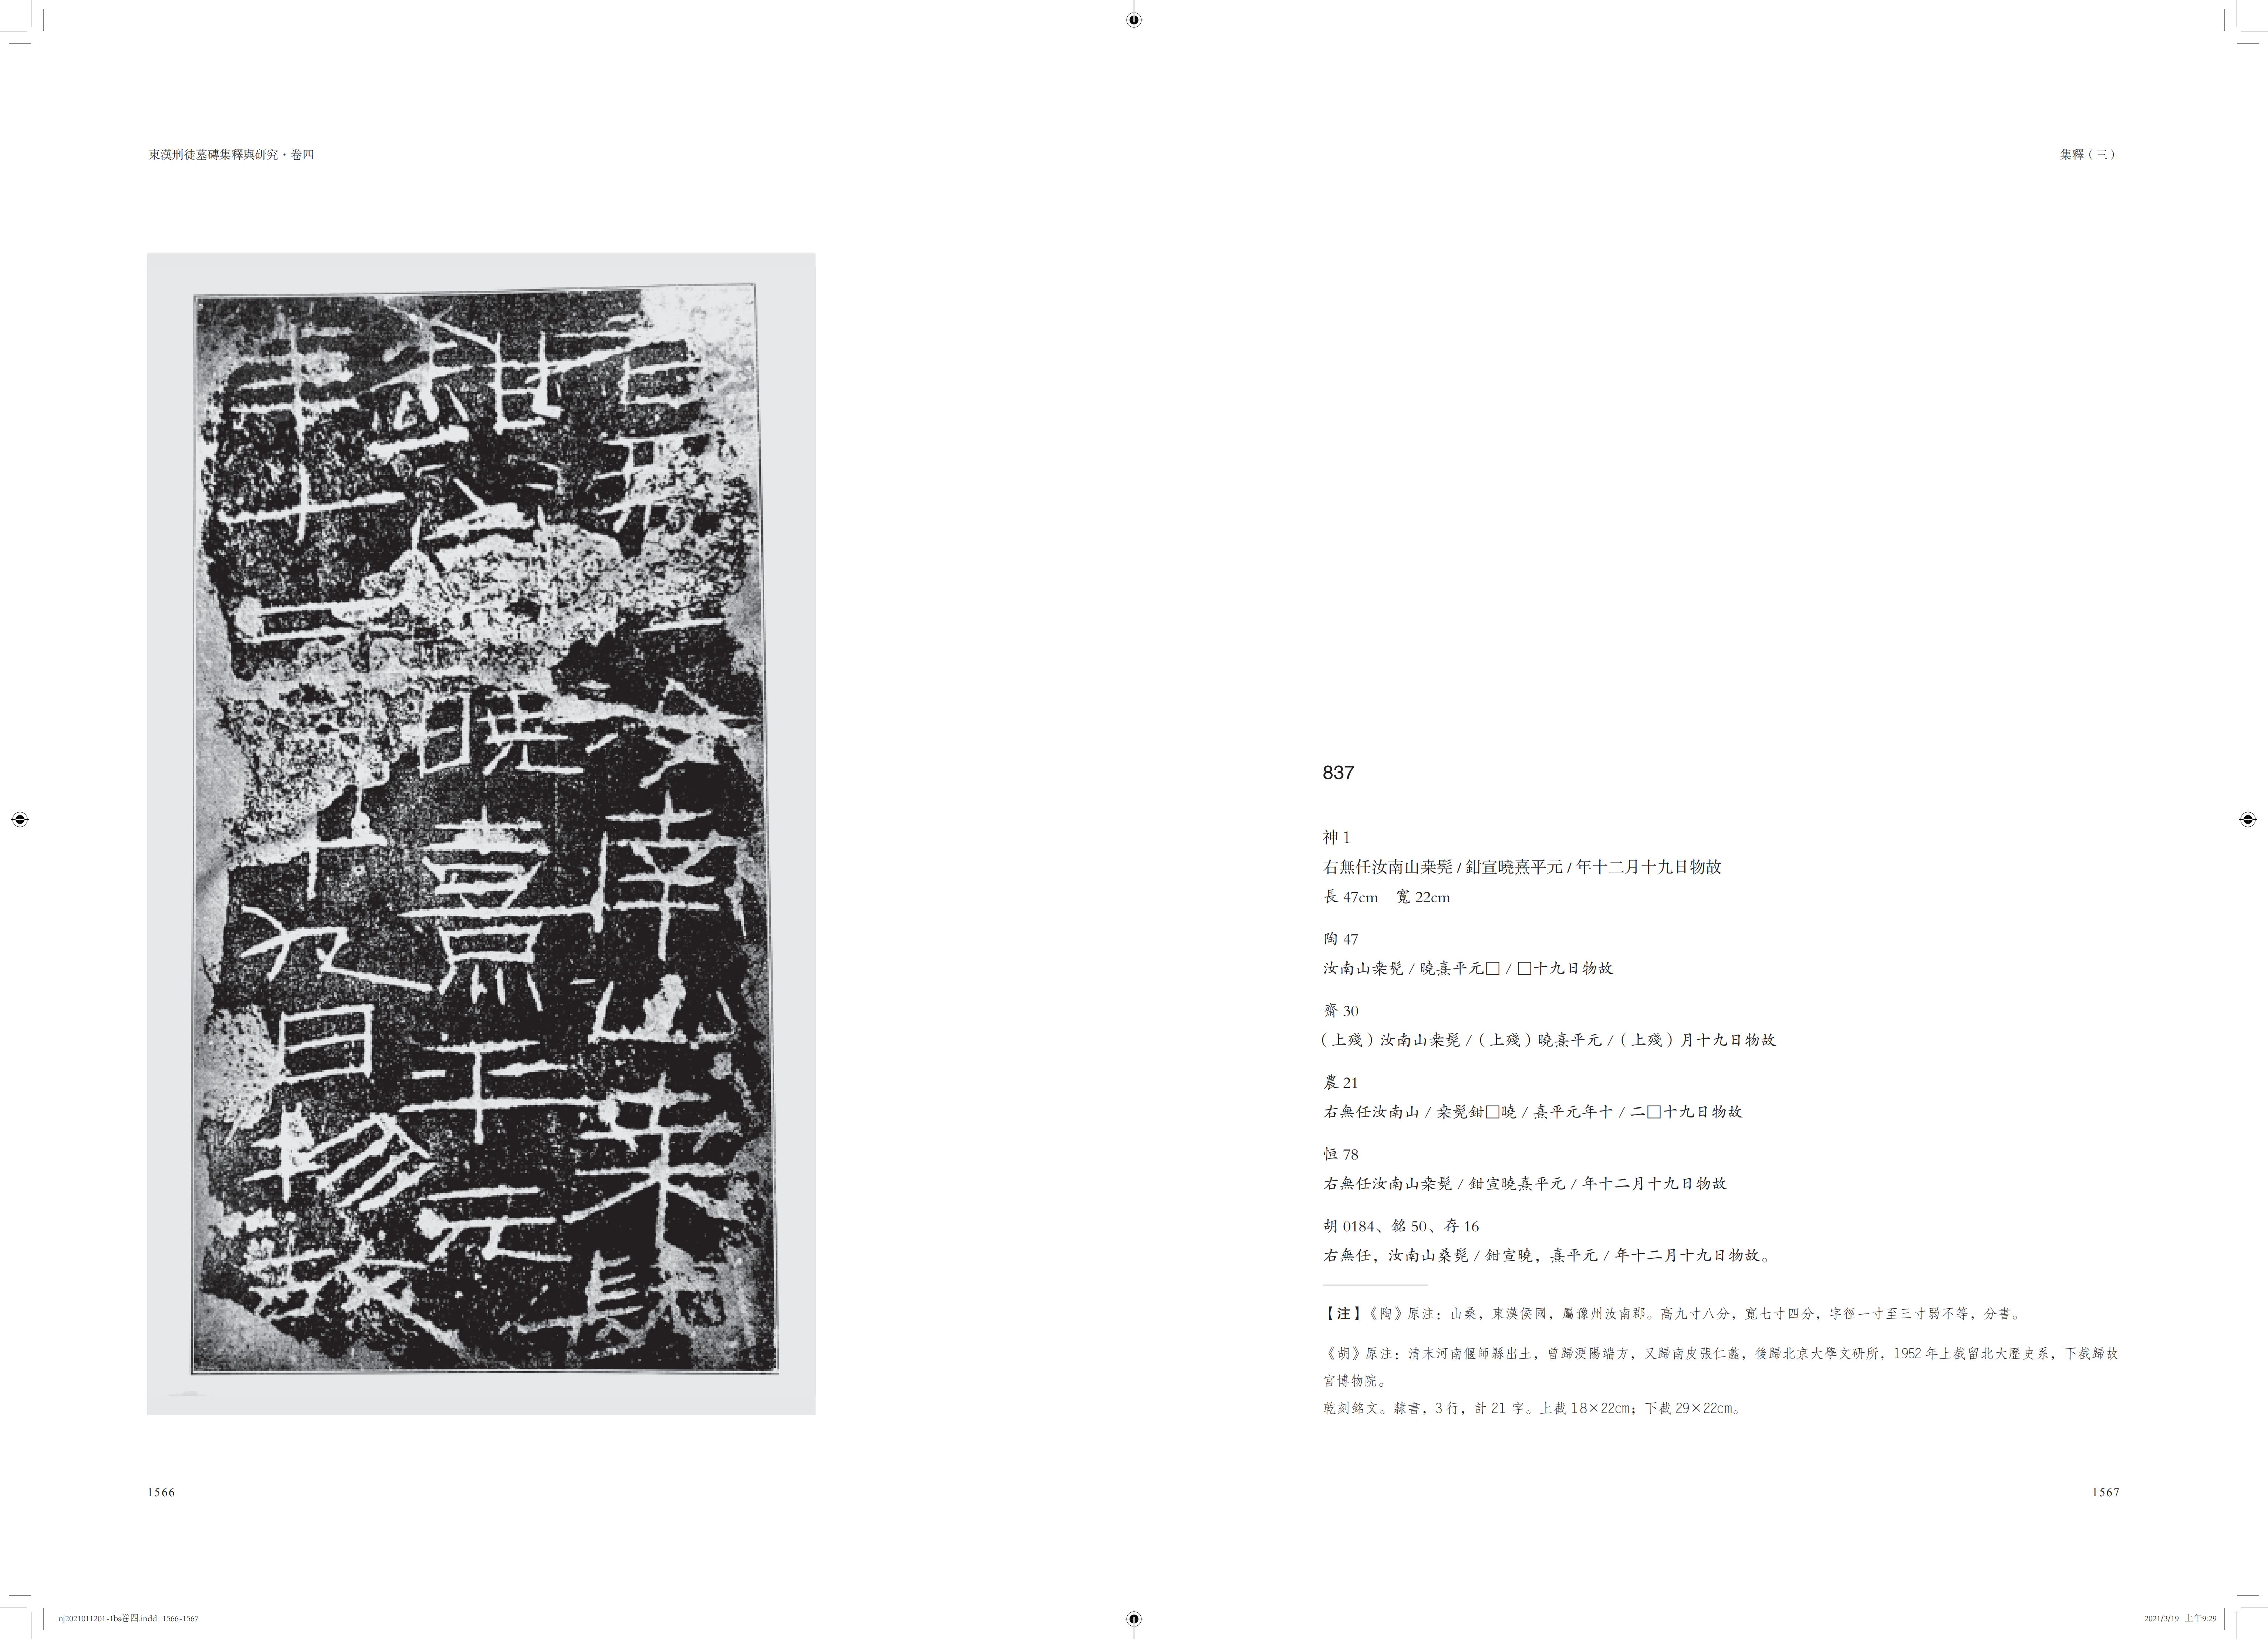 東漢刑徒墓磚集釋與研究·卷四
集釋（三）
837
神 1
右無任汝南山桒髡 / 鉗宣曉熹平元 / 年十二月十九日物故
長 47cm　寬 22cm
陶 47
汝南山桒髡 / 曉熹平元□ / □十九日物故
齋 30
（上殘）汝南山桒髡 /（上殘）曉熹平元 /（上殘）月十九日物故
農 21
右無任汝南山 / 桒髡鉗□曉 / 熹平元年十 / 二□十九日物故
恒 78
右無任汝南山桒髡 / 鉗宣曉熹平元 / 年十二月十九日物故
胡 0184、銘 50、存 16
右無任，汝南山桑髡 / 鉗宣曉，熹平元 / 年十二月十九日物故。
【注】《陶》原注：山桑，東漢侯國，屬豫州汝南郡。高九寸八分，寬七寸四分，字徑一寸至三寸弱不等，分書。
《胡》原注：清末河南偃師縣出土，曾歸浭陽端方，又歸南皮張仁蠡，後歸北京大學文研所，1952 年上截留北大歷史系，下截歸故
宮博物院。
乾刻銘文。隸書，3 行，計 21 字。上截 18×22cm；下截 29×22cm。
1566
1567
nj2021011201-1bs卷四.indd 1566-1567
2021/3/19 上午9:29